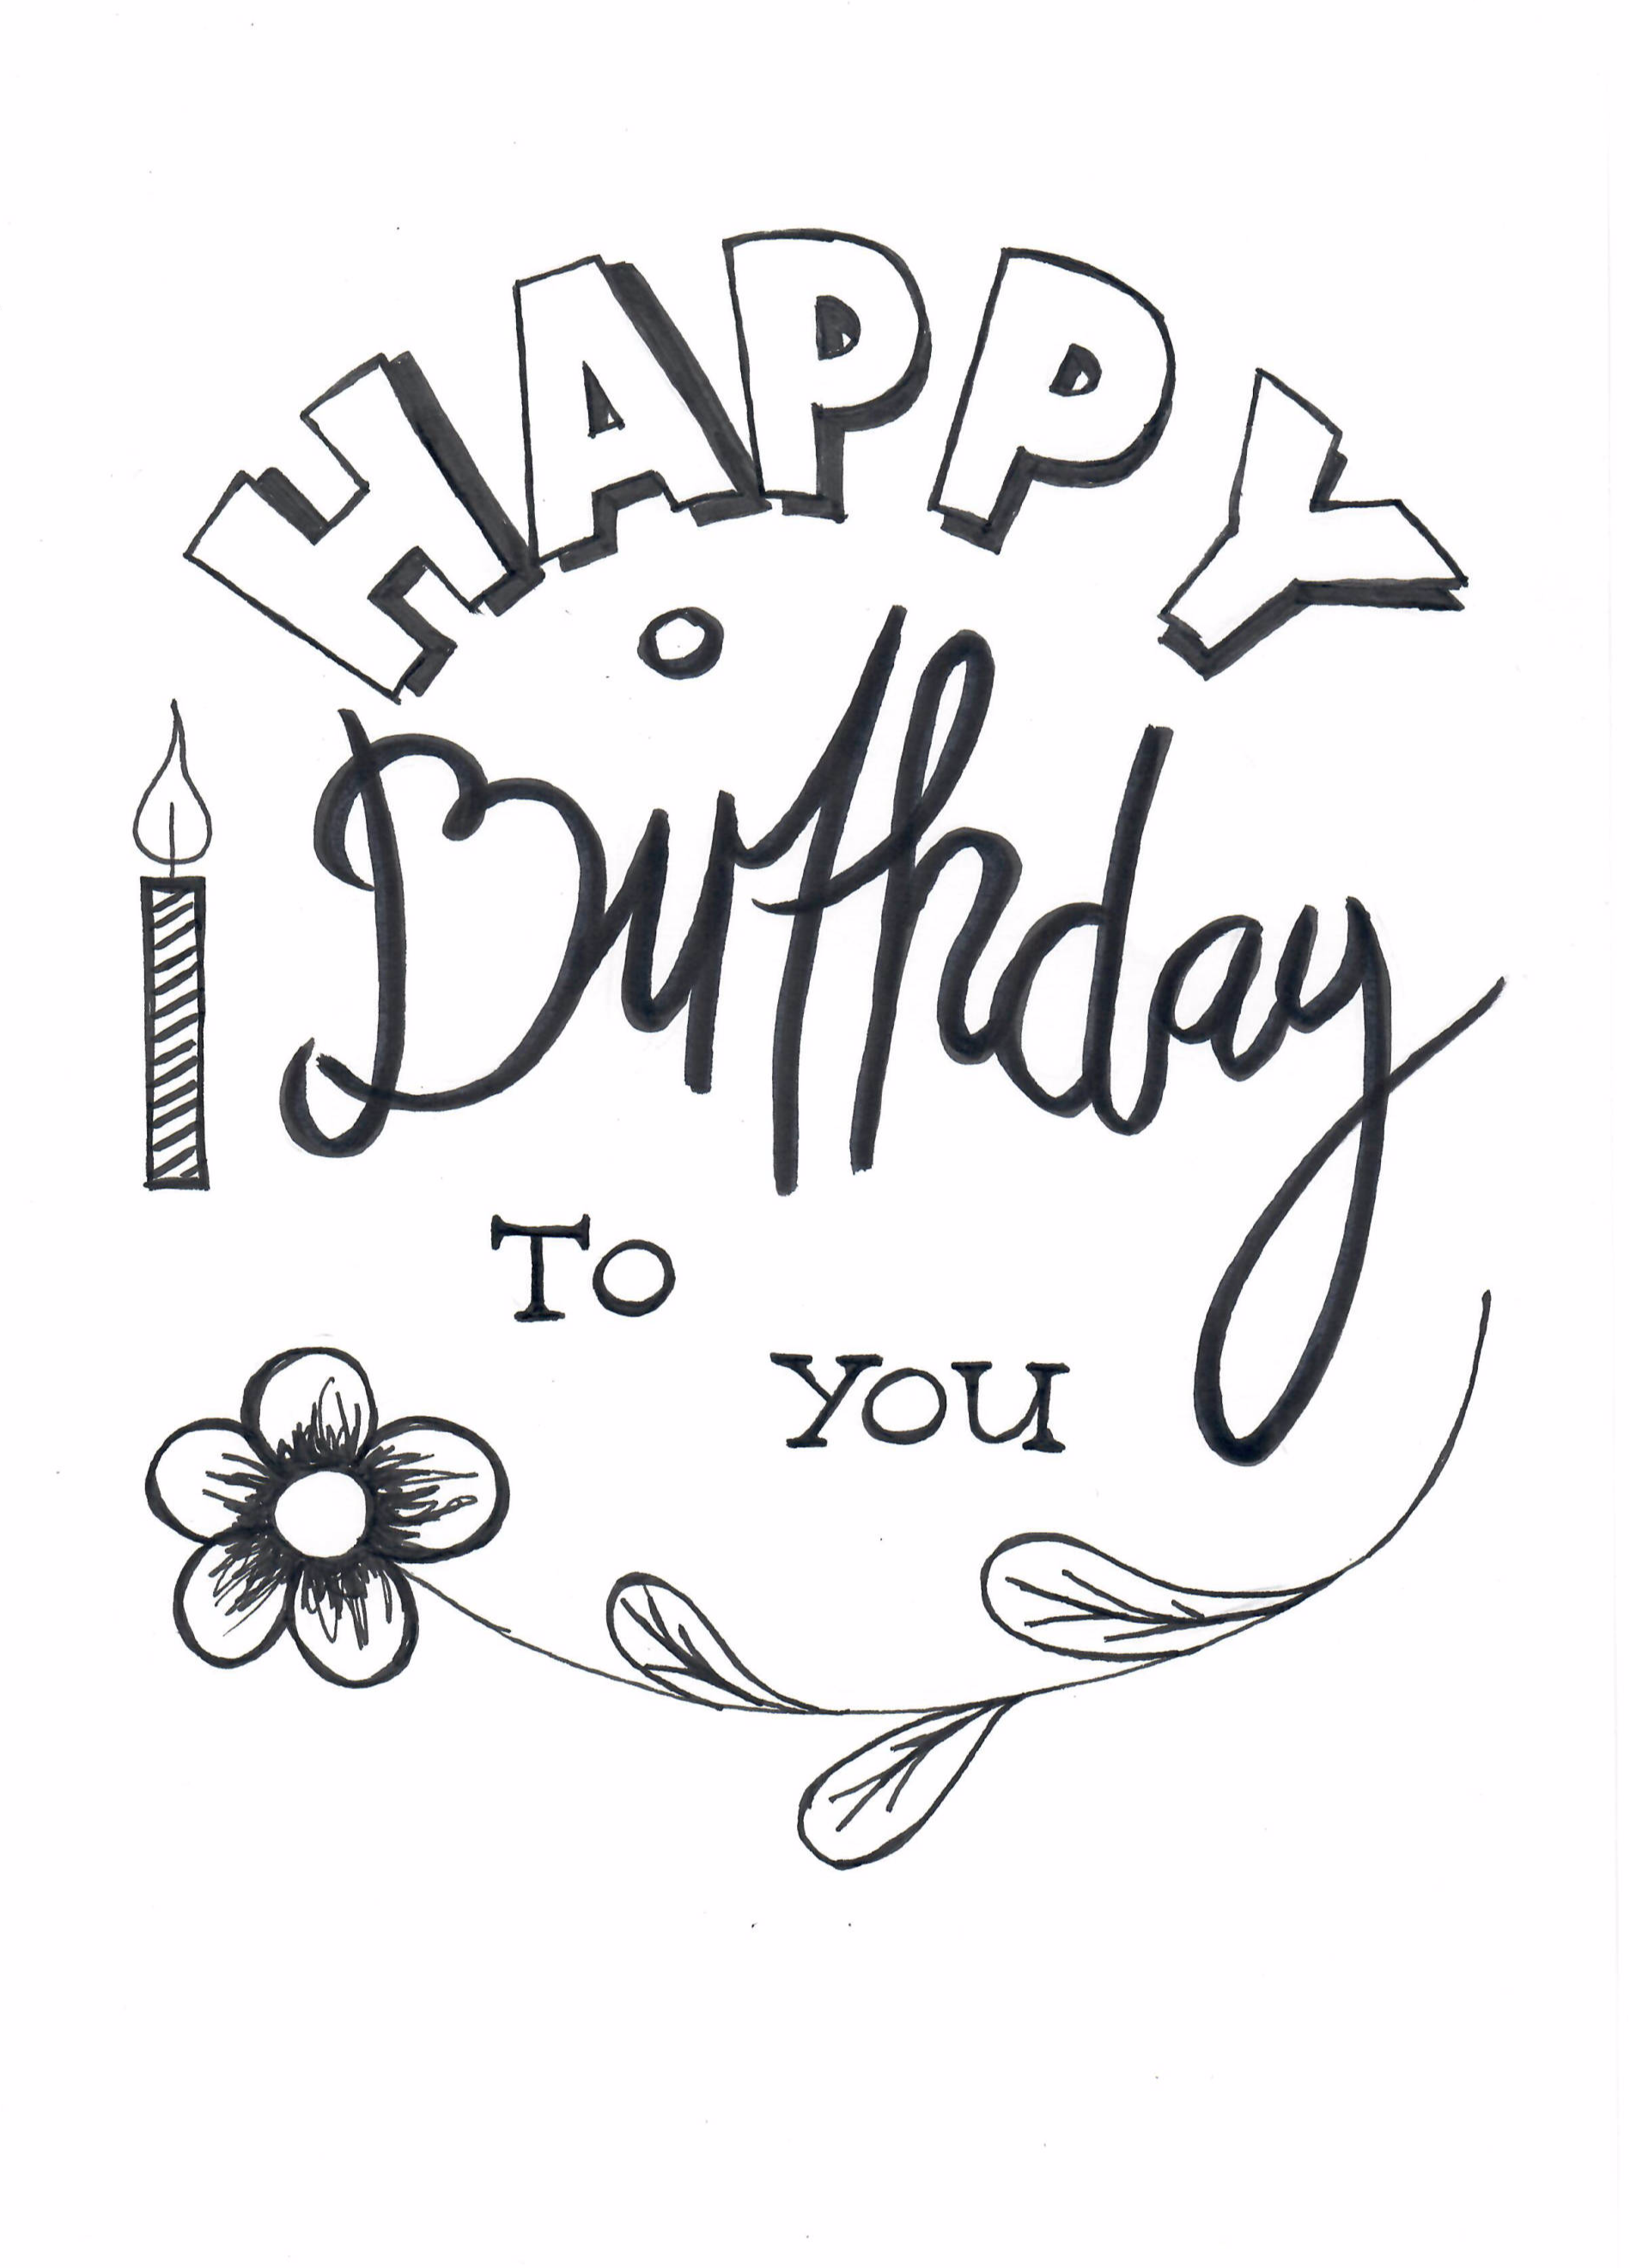 HAPPY
Birthday
TO
YOU